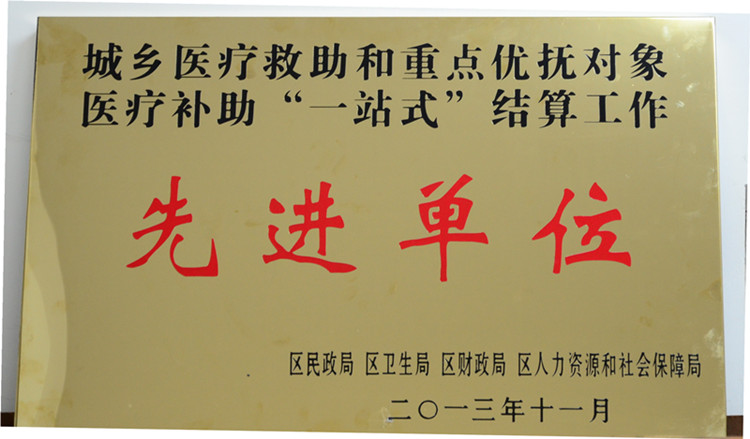 城乡医疗救助和重点优抚对象
医疗补助“一站式”结算工作
先进单位
区民政局 区卫生局 区财政局 区人力资源和社会保障局
二〇一三年十一月